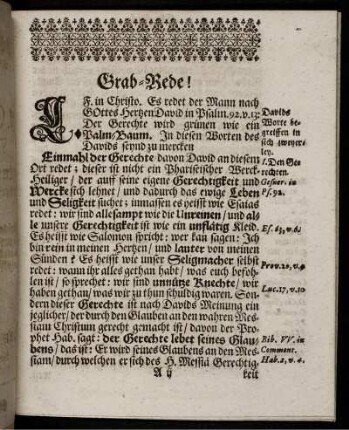 Grab-Rede!
J. F. in Christo. Es redet der Mann nach
GOttes Hertzen David in Psalm. 92. v. 13:
Der Gerechte wird grünen wie ein
Palm-Baum. In diesen Worten des
Davids seynd zu mercken
Davids
Worte be-
greiffen in
sich zweyer-
ley.
Einmahl der Gerechte davon David an diesem
Ort redet; dieser ist nicht ein Phariseischer Werck-
Heiliger / der auff seine eigene Gerechtigkeit und
Wercke sich lehnet / und dadurch das ewige Leben
und Seligkeit suchet; inmassen es heisst wie Esaias
redet: wir sind allesampt wie die Unreinen / und al-
le unsere Gerechtigkeit ist wie ein unflätig Kleid.
Es heisst wie Salomon spricht: wer kan sagen: Ich
bin rein in meinen Hertzen / und lauter von meinen
Sünden? Es heisst wie unser Seligmacher selbst
redet: wann ihr alles gethan habt / was euch befoh-
len ist / so sprechet: wir sind unnütze Knechte / wir
haben gethan / was wir zu thun schuldig waren. Son-
dern dieser Gerechte ist nach Davids Meinung ein
jeglicher / der durch den Glauben an den wahren Mes-
siam Christum gerecht gemacht ist / davon der Pro-
phet Hab. sagt: der Gerechte lebet seines Glau-
bens / das ist: Er wird seines Glaubens an den Mes-
siam / durch welchen er sich des H. Messiä Gerechtig-
A ij keit
1. Den Ge-
rechten.
Gesner. in
Ps. 92.
Es. 63, v. 6.
Prov. 20, v. 9
Luc. 17, v. 10
Bib. VV. in
Comment.
Hab. 2, v. 4.